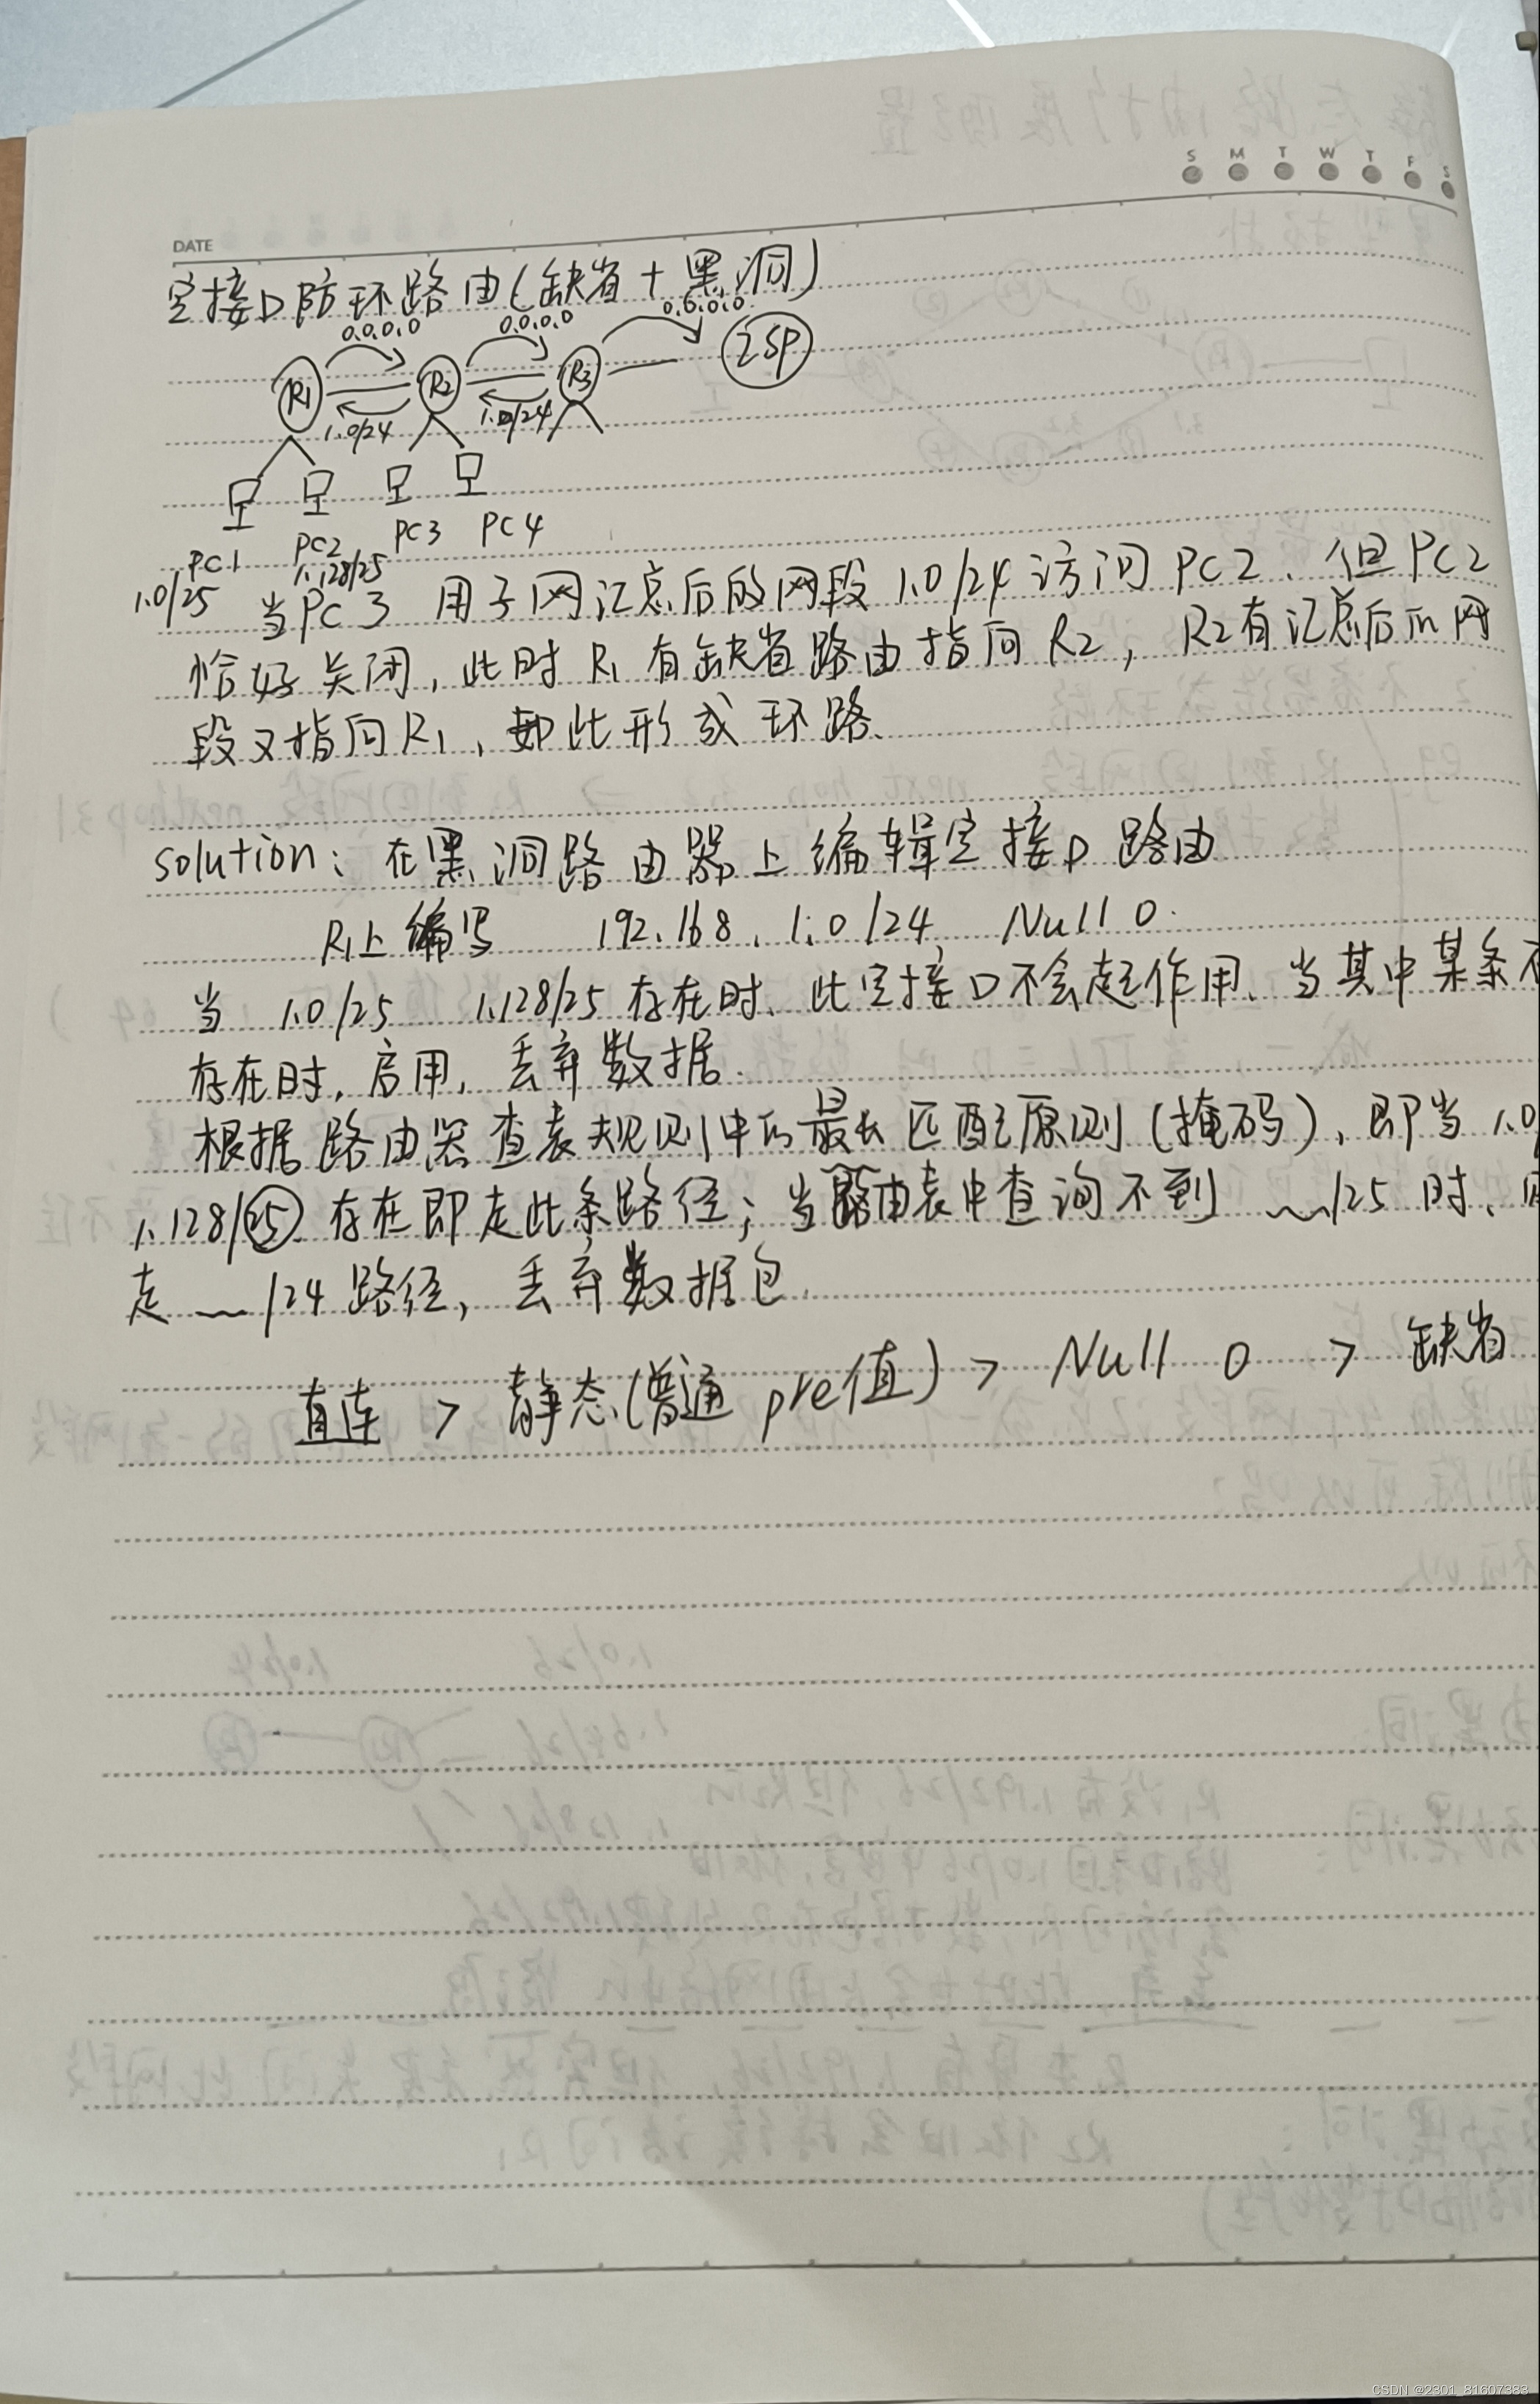 S M T W T F S
DATE
空接口防环路由(缺省+黑洞)
0.0.0.0 0.0.0.0 0.0.0.0
R1 R2 R3 ISP
1.0/24 1.0/24
PC1 PC2 PC3 PC4
1.0/25 1.128/25
当PC3 用子网汇总后的网段1.0/24访问PC2、但PC2
恰好关闭,此时R1有缺省路由指向R2,R2有汇总后的网
段又指向R1,如此形成环路、
solution: 在黑洞路由器上编辑空接口路由
R1上编写 192.168.1.0/24 Null 0.
当 1.0/25 1.128/25存在时、此空接口不会起作用、当其中某条不
存在时,启用,丢弃数据.
根据路由器查表规则中的最长匹配原则(掩码)、即当1.0
1.128/25 存在即走此条路径;当路由表中查询不到 ~/25时、
走 ~/24路径,丢弃数据包.
直连 > 静态(普通pre值) > Null 0 > 缺省
CSDN @2301_81607383